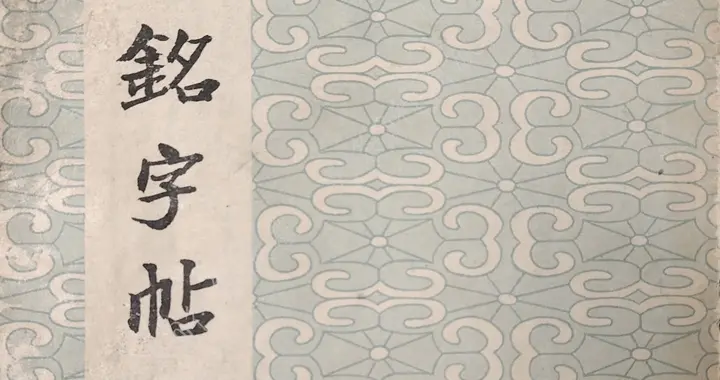 銘字帖